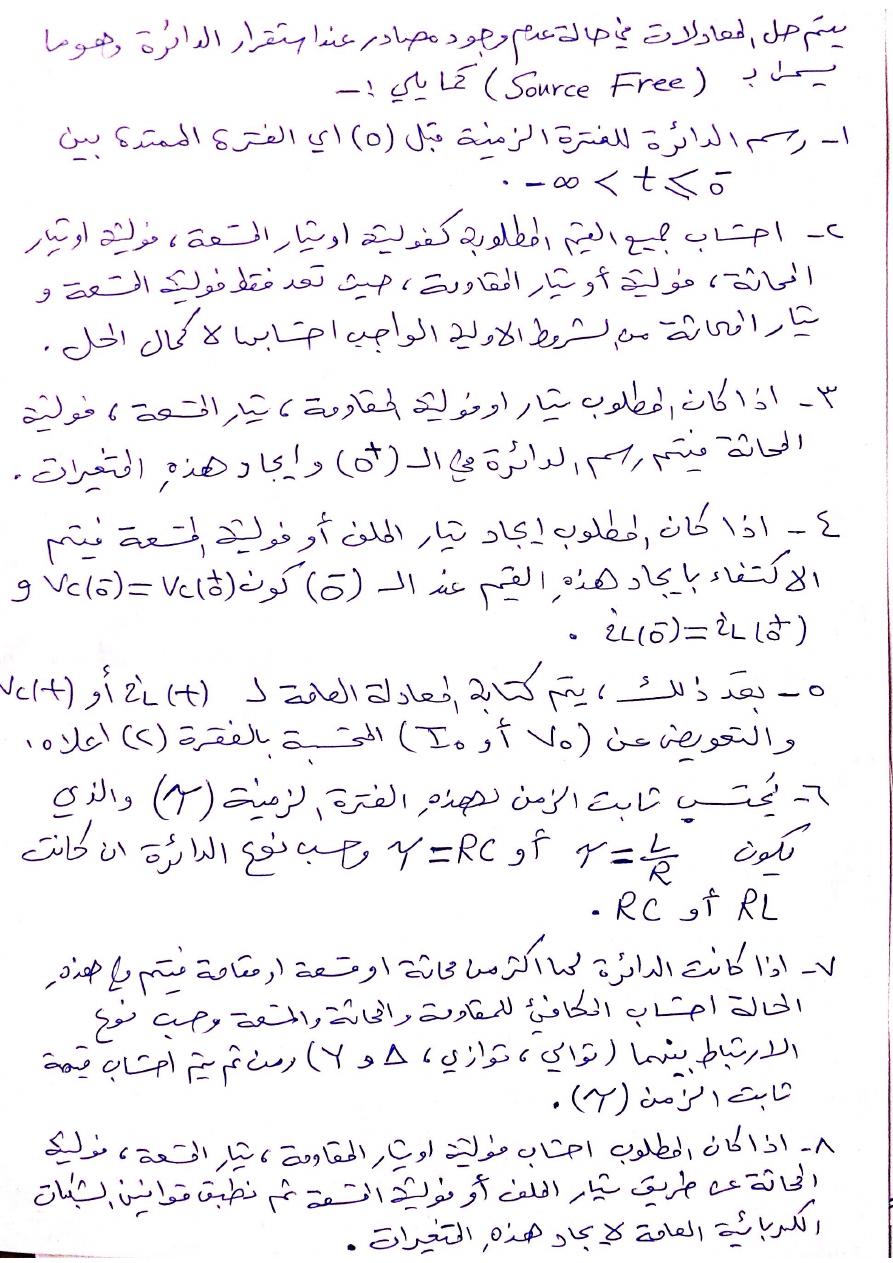 يتم حل المعادلات في حالة عدم وجود مصادر عند استقرار الدائرة وهو ما
يسمى بـ (Source Free) كما يلي :-
١- رسم الدائرة للفترة الزمنية قبل (0) اي الفترة الممتدة بين
-∞ < t ⩽ 0⁻ .
٢- احتساب جميع القيم المطلوبة كفولتية او تيار المتسعة، فولتية او تيار
المحاثة، فولتية أو تيار المقاومة، حيث تعد فقط فولتية المتسعة و
تيار المحاثة من الشروط الاولية الواجب احتسابها لاكمال الحل .
٣- اذا كان المطلوب تيار او فولتية المقاومة، تيار المتسعة، فولتية
المحاثة فيتم رسم الدائرة في الـ (0⁺) وايجاد هذه المتغيرات .
٤- اذا كان المطلوب إيجاد تيار الملف أو فولتية المتسعة فيتم
الاكتفاء بايجاد هذه القيم عند الـ (0⁻) كون Vc(0⁻)=Vc(0⁺) و
iL(0⁻)=iL(0⁺) .
٥- بعد ذلك، يتم كتابة المعادلة العامة لـ iL(t) أو Vc(t)
والتعويض عن (V₀ أو I₀) المحتسبة بالفقرة (٢) اعلاه .
٦- يُحتسب ثابت الزمن لهذه الفترة الزمنية (τ) والذي
يكون τ = L/R أو τ = RC وحسب نوع الدائرة ان كانت
RL أو RC .
٧- اذا كانت الدائرة لها اكثر من محاثة او متسعة او مقامة فيتم في هذه
الحالة احتساب المكافئ للمقاومة والمحاثة والمتسعة وحسب نوع
الارتباط بينهما (توالي، توازي، Δ و Y) ومن ثم يتم احتساب قيمة
ثابت الزمن (τ) .
٨- اذا كان المطلوب احتساب فولتية او تيار المقاومة، تيار المتسعة، فولتية
المحاثة عن طريق تيار الملف أو فولتية المتسعة ثم نطبق قوانين الشبكات
الكهربائية العامة لايجاد هذه المتغيرات .